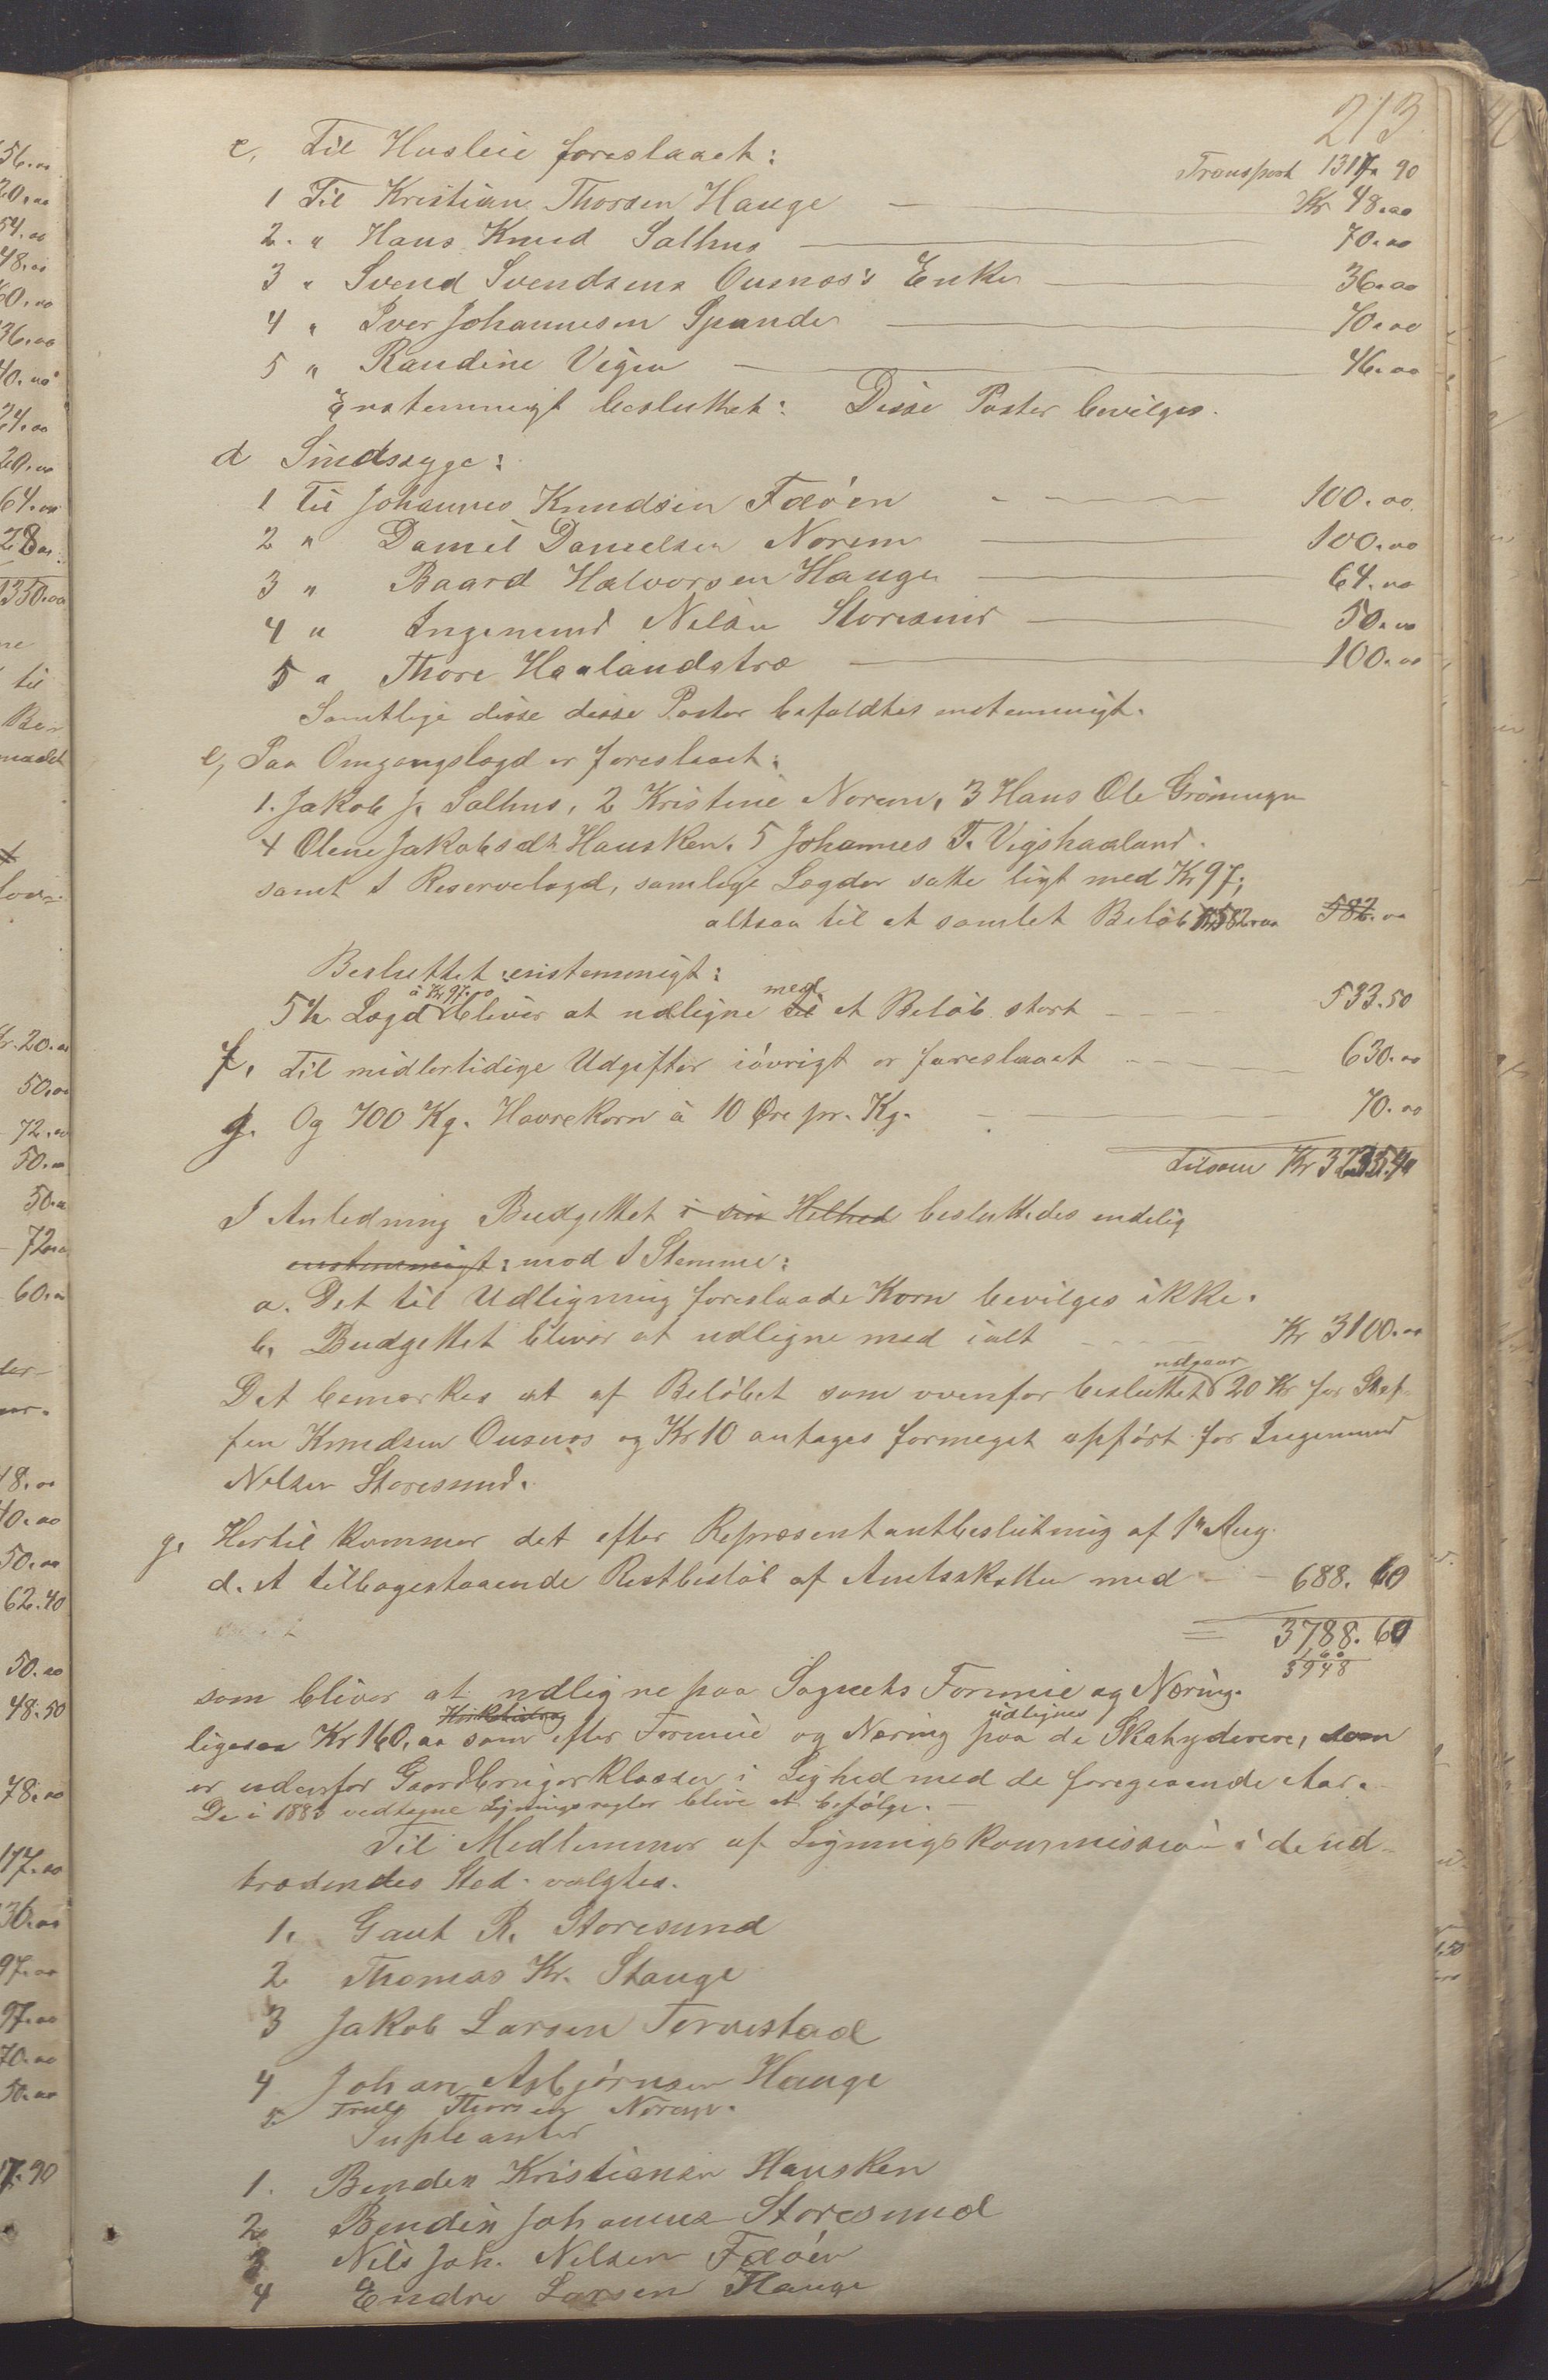 213
c, Til Husleie foreslaaet:
Transport 1317. 90
1 Til Kristian Thorsen Hauge Kr 48.00
2. " Hans Knud Salhus 70.00
3 " Svend Svendsens Ousnæs's Enke 36.00
4 " Iver Johannesen Spande 70.00
5 " Randine Vigen 46.00
Enstemmigt besluttet: Disse Poster bevilges.
d Sindssyge:
1 Til Johannes Knudsen Fæøen 100.00
2 " Daniel Danielsen Norem 100.00
3 " Baard Halvorsen Hauge 64.00
4 " Ingemund Nilsen Storesund 50.00
5 " Thore Haalandstræ 100.00
Samtlige disse disse Poster befaldtes enstemmigt.
e, Paa Omgangslægd er foreslaaet:
1. Jakob J. Salhus, 2 Kristine Norem, 3 Hans Ole Grönnugen
4 Olene Jakobsdt Hausken. 5 Johannes T. Vigshaaland.
samt 1 Reservelægd, samlige Lægder satte ligt med Kr 97,
altsaa til et samlet Beløb Kr 582.00 582.00
Besluttet enistemmigt:
5½ Lægd à Kr 97.00 bliver at udligne til med et Beløb stort 533.50
f. Til midlertidige Udgifter iøvrigt er foreslaaet 630.00
g. Og 700 Kg. Havrekorn à 10 Øre pr. Kg. 70.00
Tilsam Kr 3235.40
I Anledning Budgettet i sin Helhed besluttedes endelig
enstemmigt: mod 1 Stemme:
a. Det til Udligning foreslaade Korn bevilges ikke.
b, Budgettet bliver at udligne med ialt Kr 3100.00
Det bemærkes at af Beløbet som ovenfor besluttet udgaar 20 Kr for Stef-
fen Knudsen Ousnæs og Kr 10 antages formeget opført for Ingemund
Nilsen Storesund.
g, Hertil kommer det efter Repræsentantbeslutning af 1ste Aug.
d. A tilbagestaaende Restbeløb af Amtsskatten med 688. 60
3788. 60
160
3948
som bliver at udligne paa Sognets Formue og Næring.
ligesaa Kr 160,00 som efter Formue og Næring udlignes paa de Skatydere, som
er udenfor Gaardbrugerklassen i Lighed med de foregaaende Aar.
De i 1883 vedtagne Ligningsregler blive at befølge.
Til Medlemmer af Ligningskommission i de ud-
trædendes Sted valgtes.
1. Gaut R. Storesund
2 Thomas Kr. Stange
3 Jakob Larsen Tervestad
4 Johan Asbjørnsen Hauge
5 Truls Thorsen Norem.
Supleanter
1. Bendix Kristiansen Hausken
2 Bendix Johannes Storesund
3 Nils Joh. Nilsen Fæøen
4 Endre Larsen Hauge